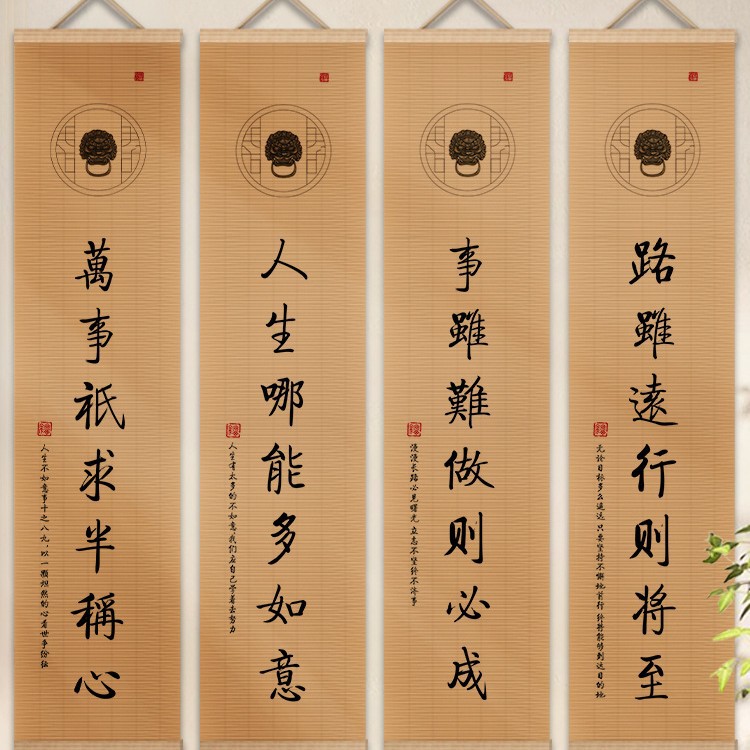 路雖遠行则将至
无论目标多么遥远 只要坚持不懈地前行 终将能够到达目的地
事雖難做则必成
漫漫长路必见曙光 立志不坚终不济事
人生哪能多如意
人生有太多的不如意，我们应自己学着去努力
萬事祇求半稱心
人生不如意事十之八九，以一颗坦然的心看世乎纷纭